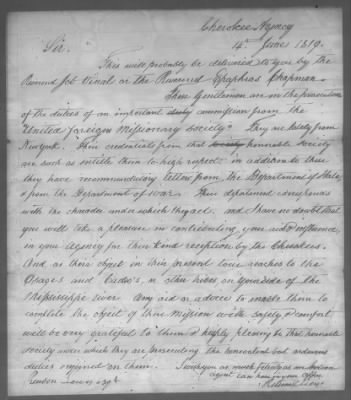 Cherokee Agency
4th June 1819.
Sir.
This will probably be delivered to you by the
Revernd Job Vinal or the Revernd Epaphras Chapman.
These Gentlemen are in the prosecution
of the duties of an important commission from the
United foreign Missionary society. They are lately from
Newyork. Their credentials from that honorable Society
are such as intitle them to high respect. in addition to these
they have recommendatory letters from the Department of State
& from the Department of War. Their deportment comports
with the character under which they act. and I have no doubt that
you will take a pleasure in contributing your aid & influence
in your agency for their kind reception by the Cherokees.
And as their object in their present tour reaches to the
Osages and Cado's, or other tribes on your side of the
Mississippi river Any aid or advice to enable them to
complete the object of their Mission with safety & comfort
will be very grateful to them & highly pleasing to that honorable
society under which they are prosecuting the benevolent but arduous
duties enjoined on them. I wish you as much felicity as an Indian
agent can have in your office